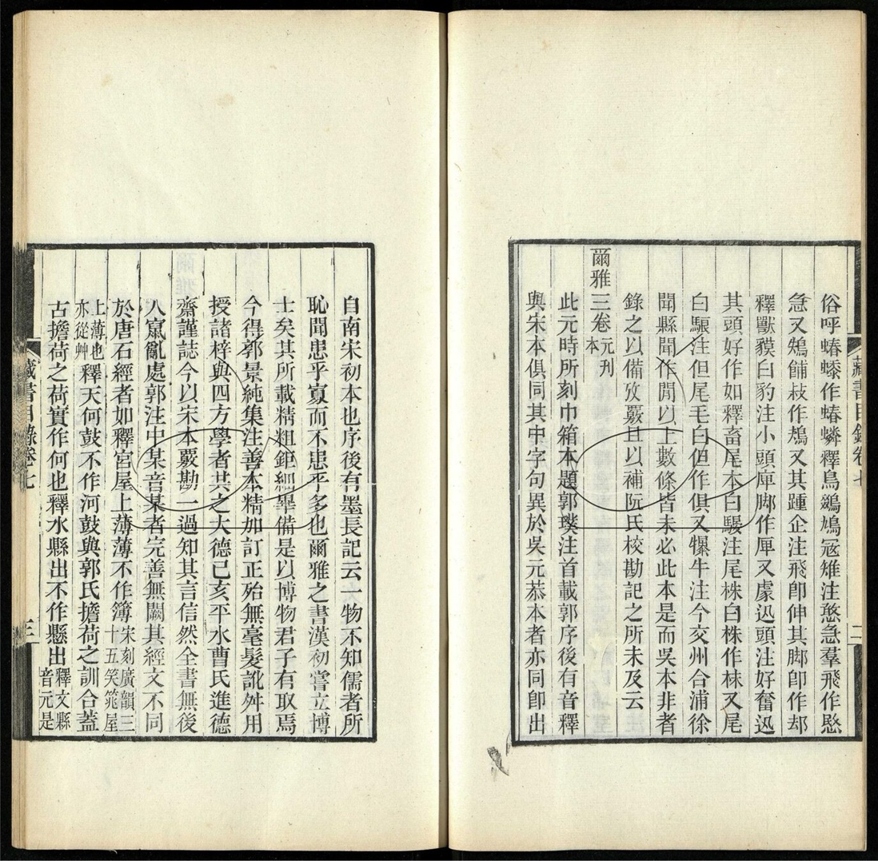 俗呼蝽蟍作蝽蟒釋鳥鷑鳩冦雉注憨急羣飛作愍
急又鴩餔敊作鴩又其踵企注飛卽伸其脚卽作却
釋獸貘白豹注小頭庳脚作厗又豦迅頭注好奮迅
其頭好作如釋畜尾本白騴注尾株白株作株又尾
白騴注但尾毛白但作俱又犦牛注今交州合浦徐
聞縣聞作閒以上數條皆未必此本是而吳本非者
錄之以備攷覈且以補阮氏校勘記之所未及云
爾雅三卷元刊本
此元時所刻巾箱本題郭璞注首載郭序後有音釋
與宋本俱同其中字句異於吳元恭本者亦同卽出
藏書目錄卷七
二
自南宋初本也序後有墨長記云一物不知儒者所
恥聞患乎寡而不患乎多也爾雅之書漢初嘗立博
士矣其所載精粗鉅細畢備是以博物君子有取焉
今得郭景純集注善本精加訂正殆無毫髮訛舛用
授諸梓與四方學者共之大德己亥平水曹氏進德
齋謹誌今以宋本覈勘一過知其言信然全書無後
人竄亂處郭注中某音某者完善無闕其經文不同
於唐石經者如釋宮屋上薄薄不作簿宋刻廣韻三十五笑筄屋
上薄也亦從艸釋天何鼓不作河鼓與郭氏擔荷之訓合蓋
古擔荷之荷實作何也釋水縣出不作懸出釋文縣音元是
藏書目錄卷七
三